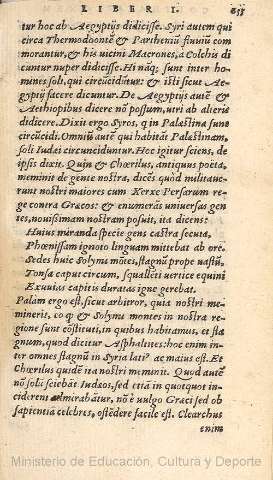 LIBER I. 633
tur hoc ab Aegyptijs didicisse. Syri autem qui
circa Thermodoontē & Partheniū fluuiū com
morantur, & his vicini Macrones, a Colchis di
cuntur nuper didicisse. Hi nāq; sunt inter ho
mines soli, qui circūcidūtur: & isti sicut Ae-
gyptij facere dicuntur. De Aegyptijs autē &
Aethiopibus dicere nō possum, vtri ab alteris
didicere. Dixit ergo Syros, q in Palæstina sunt
circūcidi. Omniū autē qui habitāt Palæstinam,
soli Iudæi circunciduntur. Hoc igitur sciens, de
ipsis dixit. Quin & Chœrilus, antiquus poeta,
meminit de gente nostra, dicēs quòd militaue-
runt nostri maiores cum Xerxe Persarum re-
ge contra Græcos: & enumerās uniuersas gen
tes, nouissimam nostram posuit, ita dicens:
Huius miranda specie gens castra secuta,
Phœnissam ignoto linguam mittebat ab ore.
Sedes huic Solymi mōtes, stagnū prope uastū,
Tonsa caput circum, squallēti uertice equini
Exuuias capitis duratas igne gerebat.
Palàm ergo est, sicut arbitror, quia nostri me-
minerit, eo q & Solymi montes in nostra re-
gione sunt cōstituti, in quibus habitamus, et sta
gnum, quod dicitur Asphaltites: hoc enim in-
ter omnes stagnū in Syria lati⁹ ac maius est. Et
Chœrilus quidē ita nostri meminit. Quod autē
nō soli sciebāt Iudæos, sed etiā in quotquot in-
ciderent admirabātur, nō è uulgo Græci sed ob
sapientia celebres, ostēdere facile est. Clearchus
enim
Ministerio de Educación, Cultura y Deporte